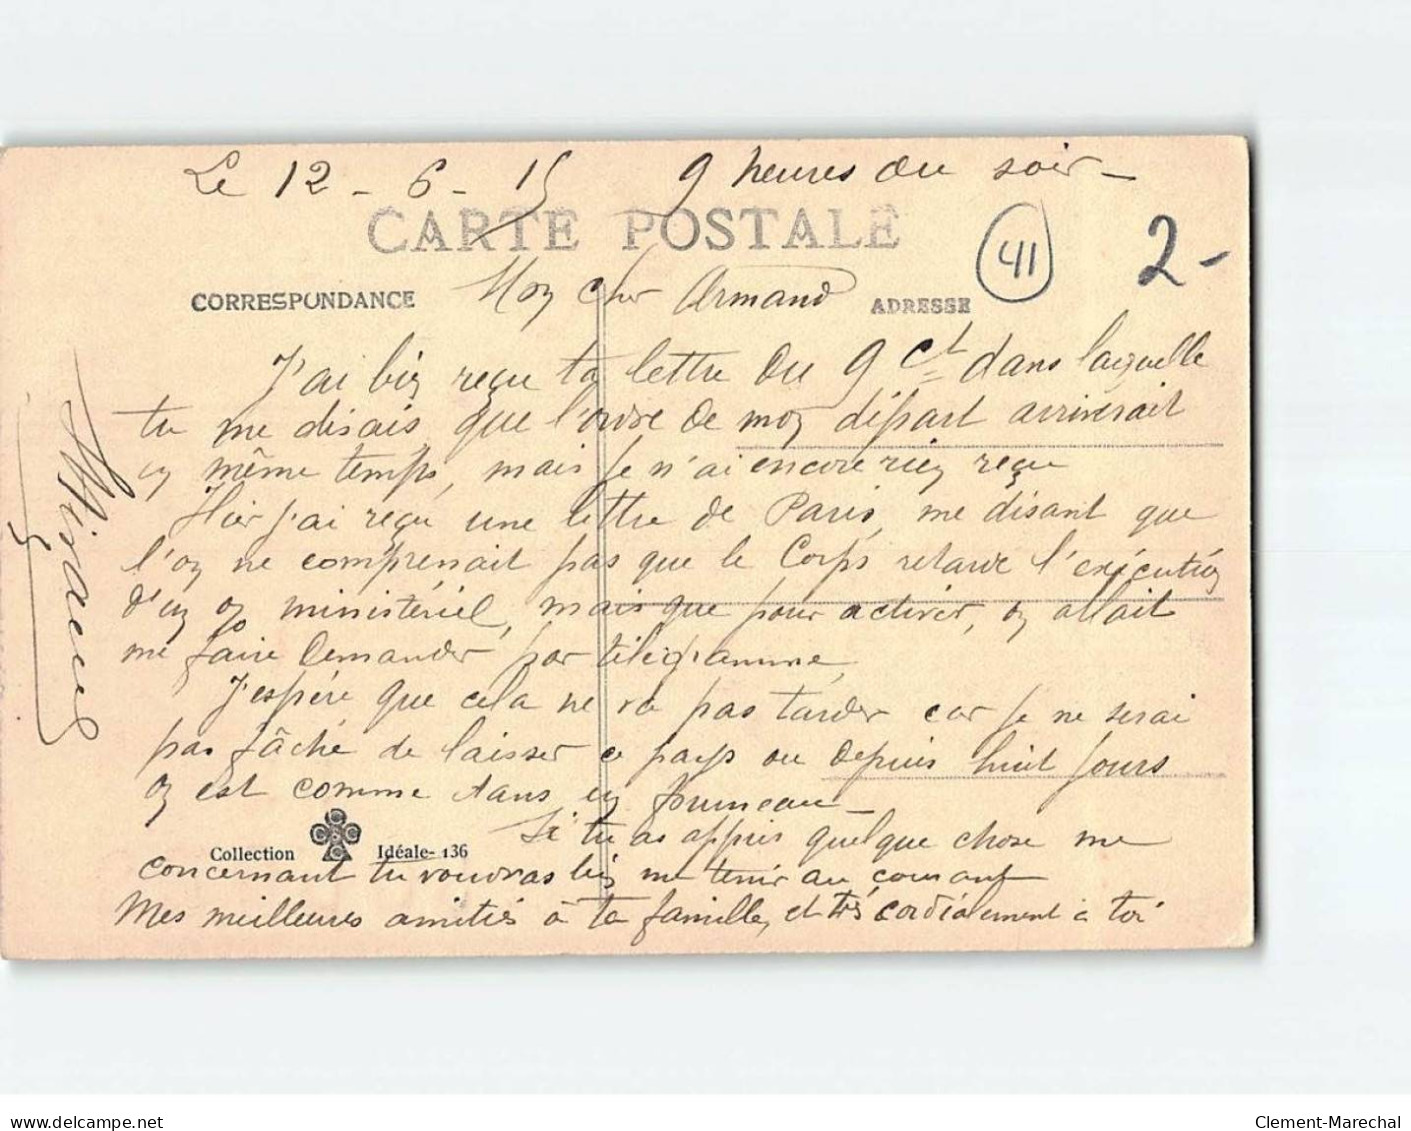 Le 12 - 6 - 15 9 heures du soir -
CARTE POSTALE
41
2 -
CORRESPONDANCE
Mon cher Armand
ADRESSE
J'ai bien reçu ta lettre du 9 ct dans laquelle
tu me disais, que l'ordre de mon départ arriverait
en même temps, mais je n'ai encore rien reçu
Hier j'ai reçu une lettre de Paris, me disant que
l'on ne comprenait pas que le Corps retarde l'exécution
d'un on ministériel, mais que pour activer, on allait
me faire demander par télégramme,
J'espère que cela ne va pas tarder car je ne serai
pas fâché de laisser ce pays ou depuis huit jours
on est comme dans un fourneau -
Si tu as appris quelque chose me
Collection Idéale - 136
concernant tu voudras bien me tenir au courant
Mes meilleures amitiés à ta famille, et très cordialement à toi
delcampe.net
Clement-Marechal